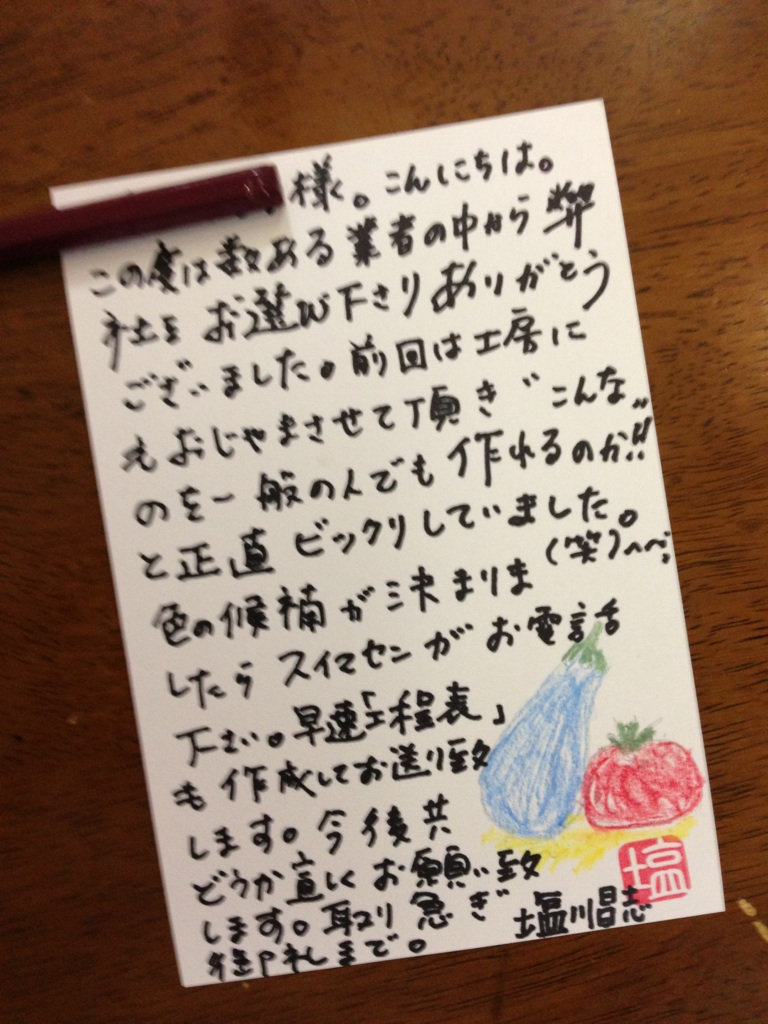 様。こんにちは。
この度は数ある業者の中から弊
社をお選び下さりありがとう
ございました。前回は工房に
えおじゃまさせて頂き"こんな"
のを一般の人でも作れるのか!!
と正直ビックリしていました。
(笑)^^;
色の候補が決まりま
したらスイマセンがお電話
下さい。早速「工程表」
も作成してお送り致
します。今後共
どうか宜しくお願い致
します。取り急ぎ
御礼まで。
塩川昌志
塩